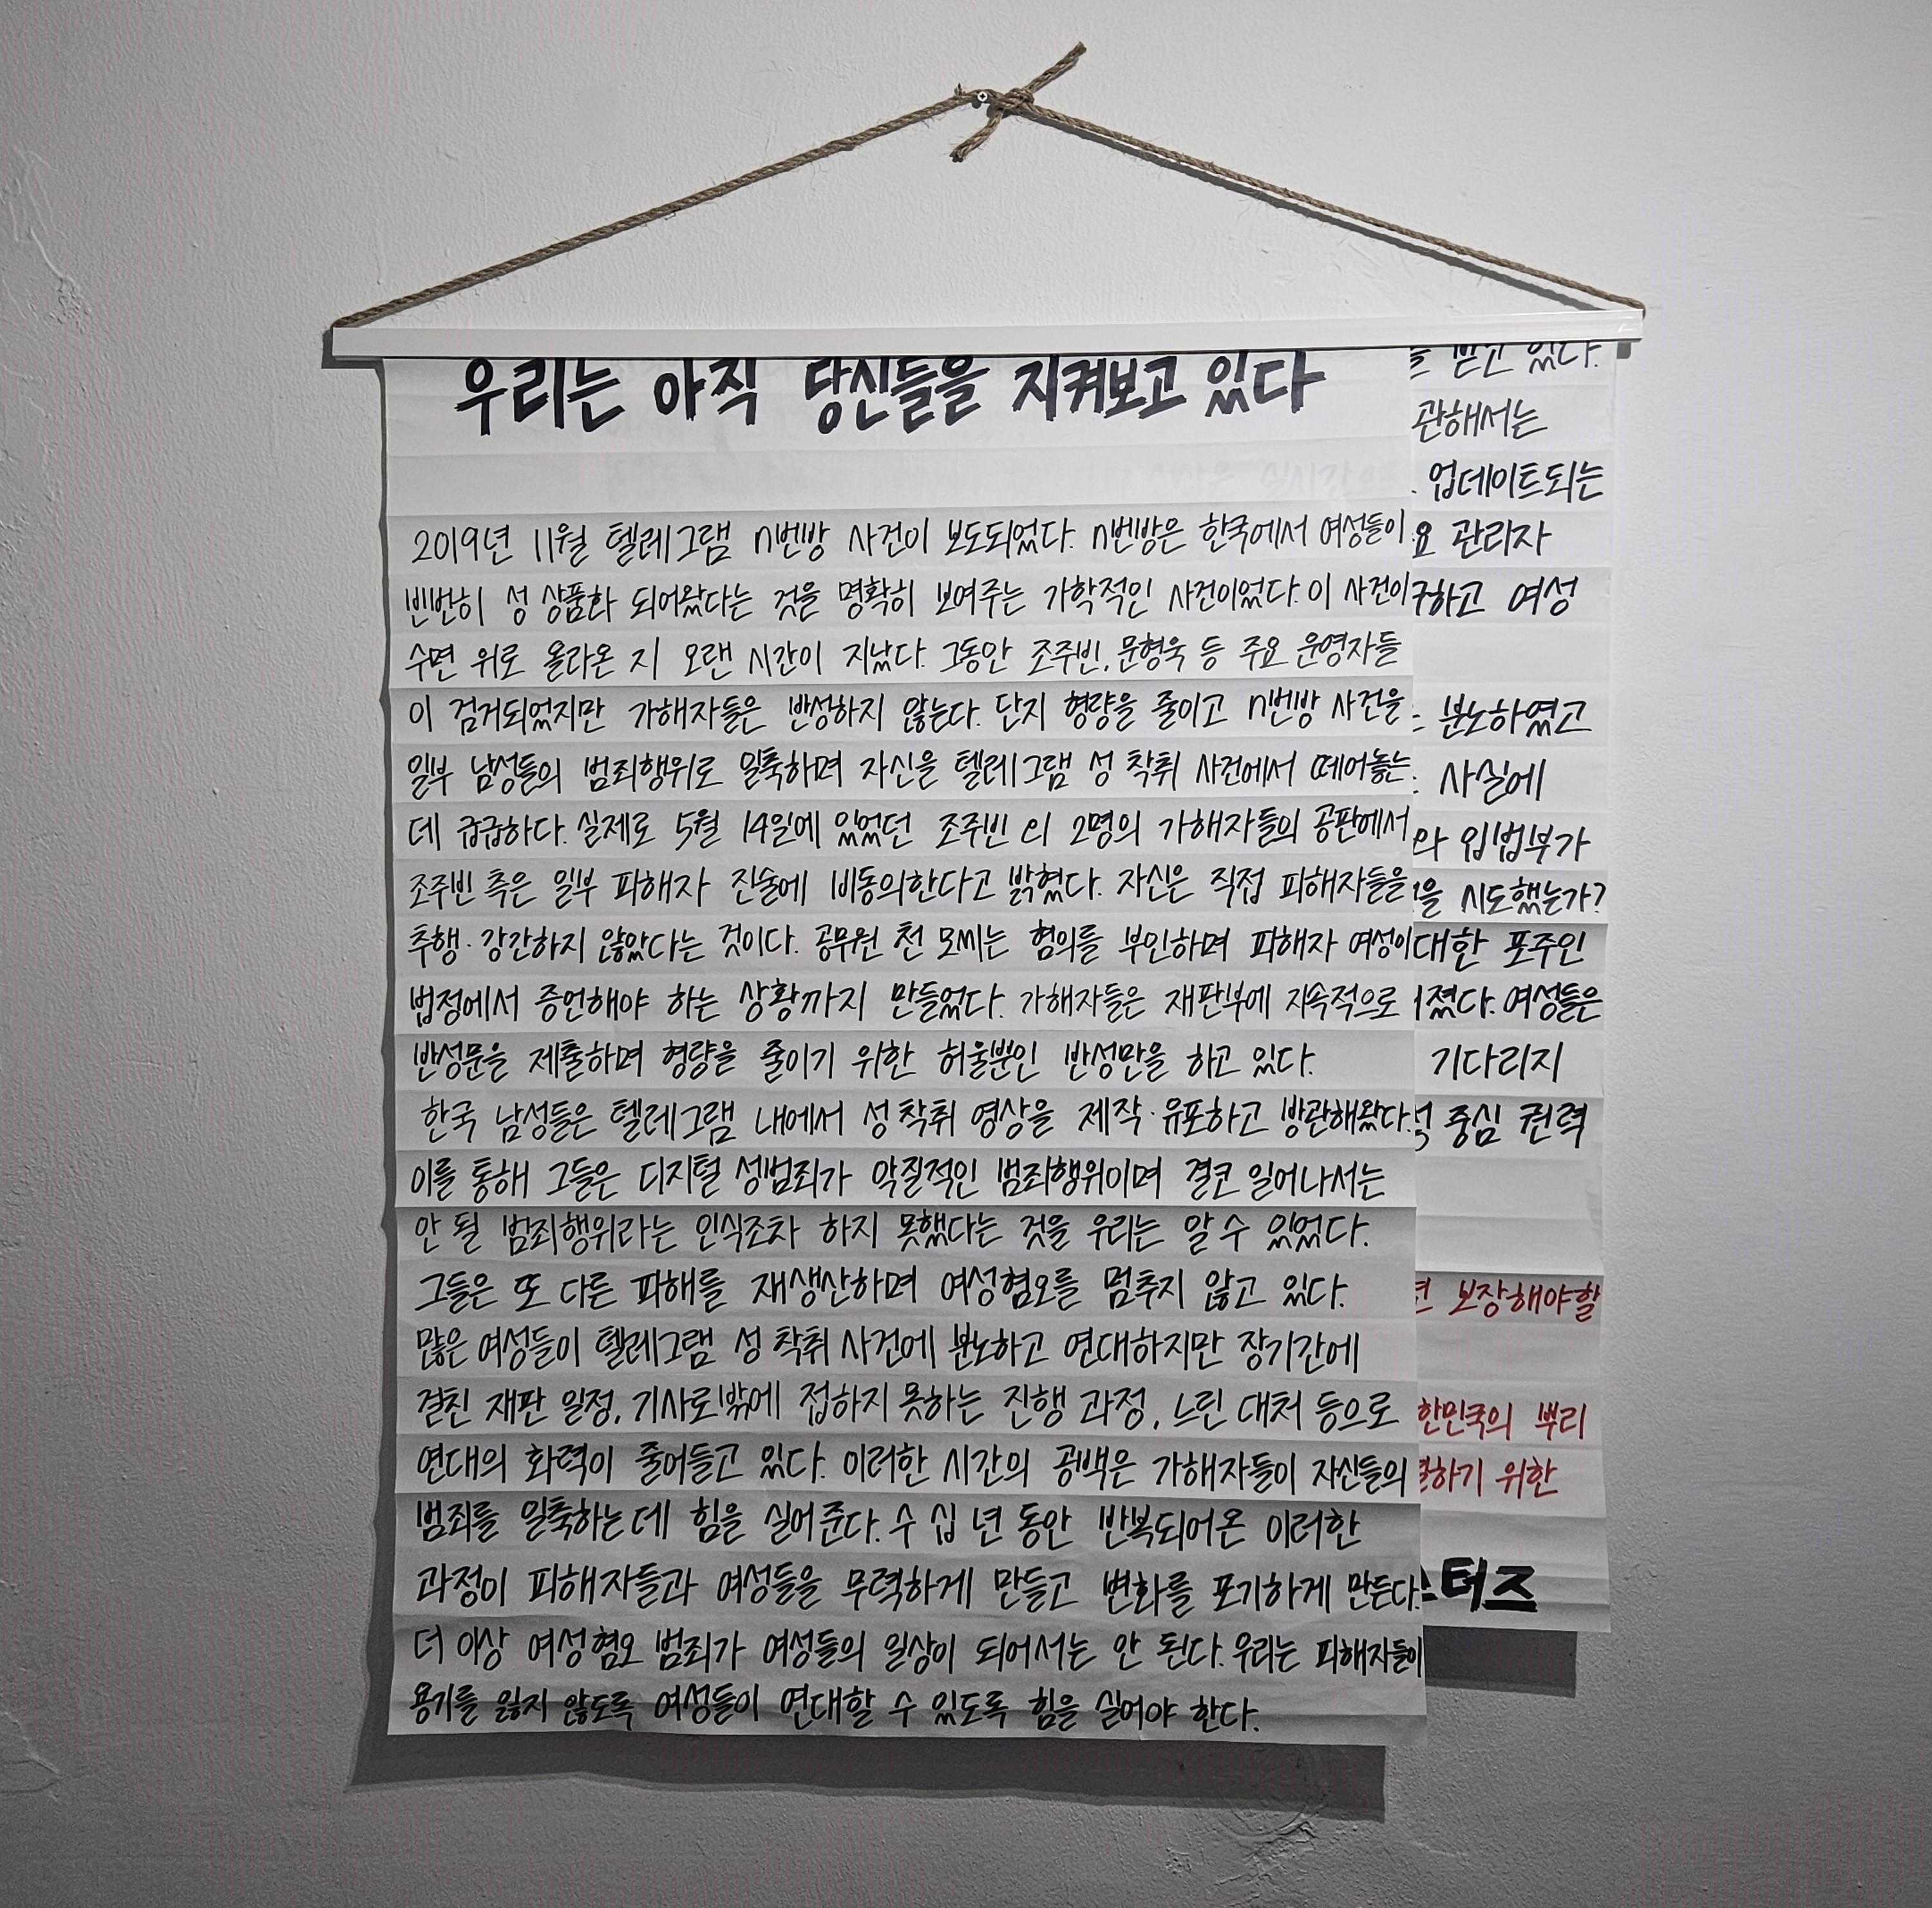 우리는 아직 당신들을 지켜보고 있다
2019년 11월 텔레그램 n번방 사건이 보도되었다. n번방은 한국에서 여성들이
빈번히 성 상품화 되어왔다는 것을 명확히 보여주는 가학적인 사건이었다. 이 사건이
수면 위로 올라온 지 오랜 시간이 지났다. 그동안 조주빈, 문형욱 등 주요 운영자들
이 검거되었지만 가해자들은 반성하지 않는다. 단지 형량을 줄이고 n번방 사건을
일부 남성들의 범죄행위로 일축하며 자신을 텔레그램 성 착취 사건에서 떼어놓는
데 급급하다. 실제로 5월 14일에 있었던 조주빈 외 2명의 가해자들의 공판에서
조주빈 측은 일부 피해자 진술에 비동의한다고 밝혔다. 자신은 직접 피해자들을
추행·강간하지 않았다는 것이다. 공무원 천 모씨는 혐의를 부인하며 피해자 여성이
법정에서 증언해야 하는 상황까지 만들었다. 가해자들은 재판부에 지속적으로
반성문을 제출하며 형량을 줄이기 위한 허울뿐인 반성만을 하고 있다.
한국 남성들은 텔레그램 내에서 성 착취 영상을 제작·유포하고 방관해왔다.
이를 통해 그들은 디지털 성범죄가 악질적인 범죄행위이며 결코 일어나서는
안 될 범죄행위라는 인식조차 하지 못했다는 것을 우리는 알 수 있었다.
그들은 또 다른 피해를 재생산하며 여성혐오를 멈추지 않고 있다.
많은 여성들이 텔레그램 성 착취 사건에 분노하고 연대하지만 장기간에
걸친 재판 일정, 기사로밖에 접하지 못하는 진행 과정, 느린 대처 등으로
연대의 화력이 줄어들고 있다. 이러한 시간의 공백은 가해자들이 자신들의
범죄를 일축하는데 힘을 실어준다. 수 십 년 동안 반복되어온 이러한
과정이 피해자들과 여성들을 무력하게 만들고 변화를 포기하게 만든다.
더 이상 여성혐오 범죄가 여성들의 일상이 되어서는 안 된다. 우리는 피해자들이
용기를 잃지 않도록 여성들이 연대할 수 있도록 힘을 실어야 한다.
받고 있다.
관해서는
업데이트되는
요 관리자
하고 여성
분노하였고
사실에
와 입법부가
을 시도했는가?
대한 포주인
졌다. 여성들은
기다리지
중심 권력
보장해야할
한민국의 뿌리
하기 위한
터즈